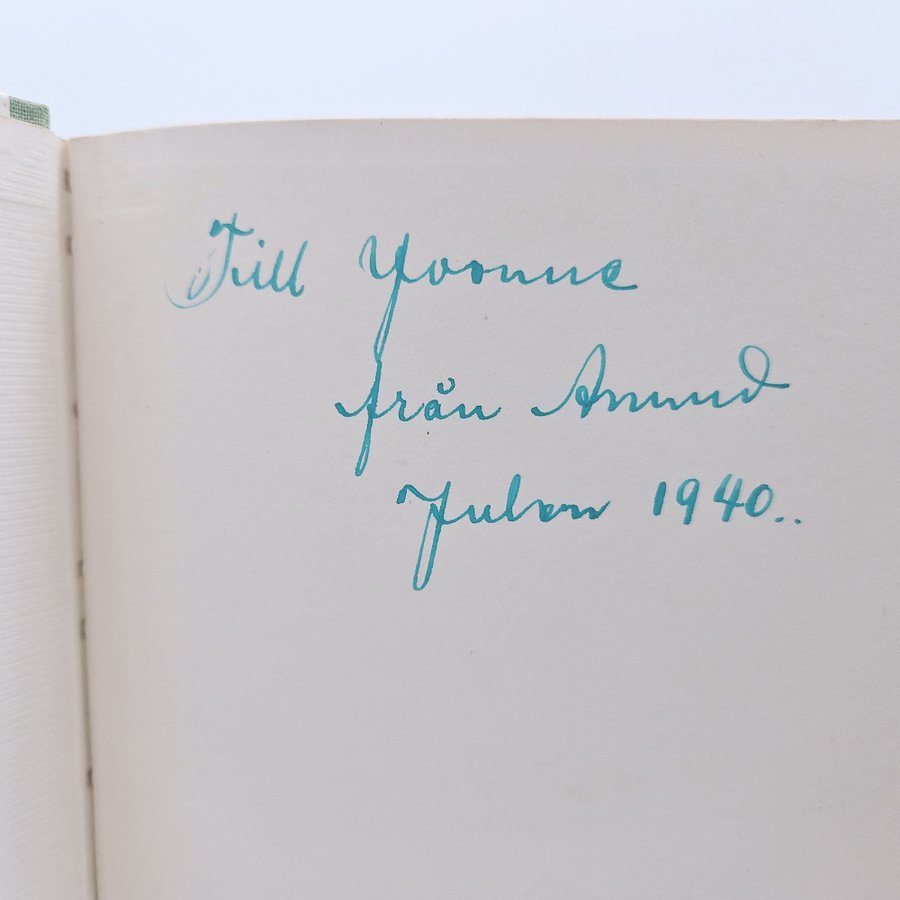 Till Yvonne
från
Julen 1940..